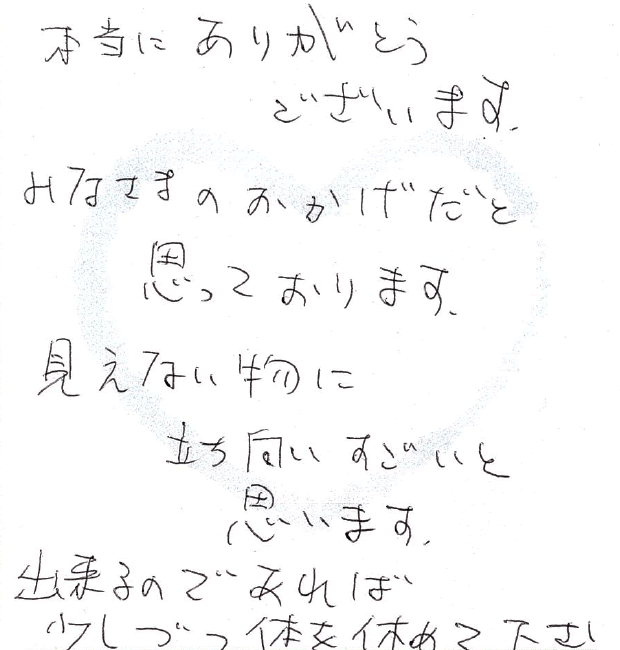 本当に ありがとう
ございます.
みなさまの おかげだと
思って おります.
見えない 物に
立ち向い すごいと
思います.
出来るのであれば
少しづつ 体を休めて下さい